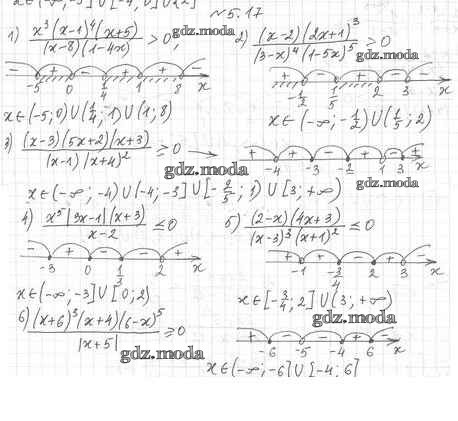 №5.17
1) x³(x-1)⁴(x+5) / (x-8)(1-4x) > 0,
gdz.moda
2) (x-2)(2x+1)³ / (3-x)⁴(1-5x)⁵ > 0
gdz.moda
-5 0 1/4 1 8 x
+ - + - +
-1/2 1/5 2 3 x
x∈(-5;0)∪(1/4;1)∪(1;8)
x∈(-∞;-1/2)∪(1/5;2)
3) (x-3)(5x+2)(x+3) / (x-1)(x+4)² ≥ 0
gdz.moda
+ + - + - +
-4 -3 1 3 x
gdz.moda
x∈(-∞;-4)∪(-4;-3]∪[-2/5;1)∪[3;+∞)
4) x⁵|3x-1|(x+3) / x-2 ≤ 0
5) (2-x)(4x+3) / (x-3)³(x+1)² ≤ 0
- + - - +
-3 0 1/3 2 x
+ + - + -
-1 -3/4 2 3 x
x∈(-∞;-3]∪[0;2)
x∈[-3/4;2]∪(3;+∞)
gdz.moda
6) (x+6)³(x+4)(6-x)⁵ / |x+5| ≥ 0
gdz.moda
+ - - + -
-6 -5 -4 6 x
x∈(-∞;-6]∪[-4;6]